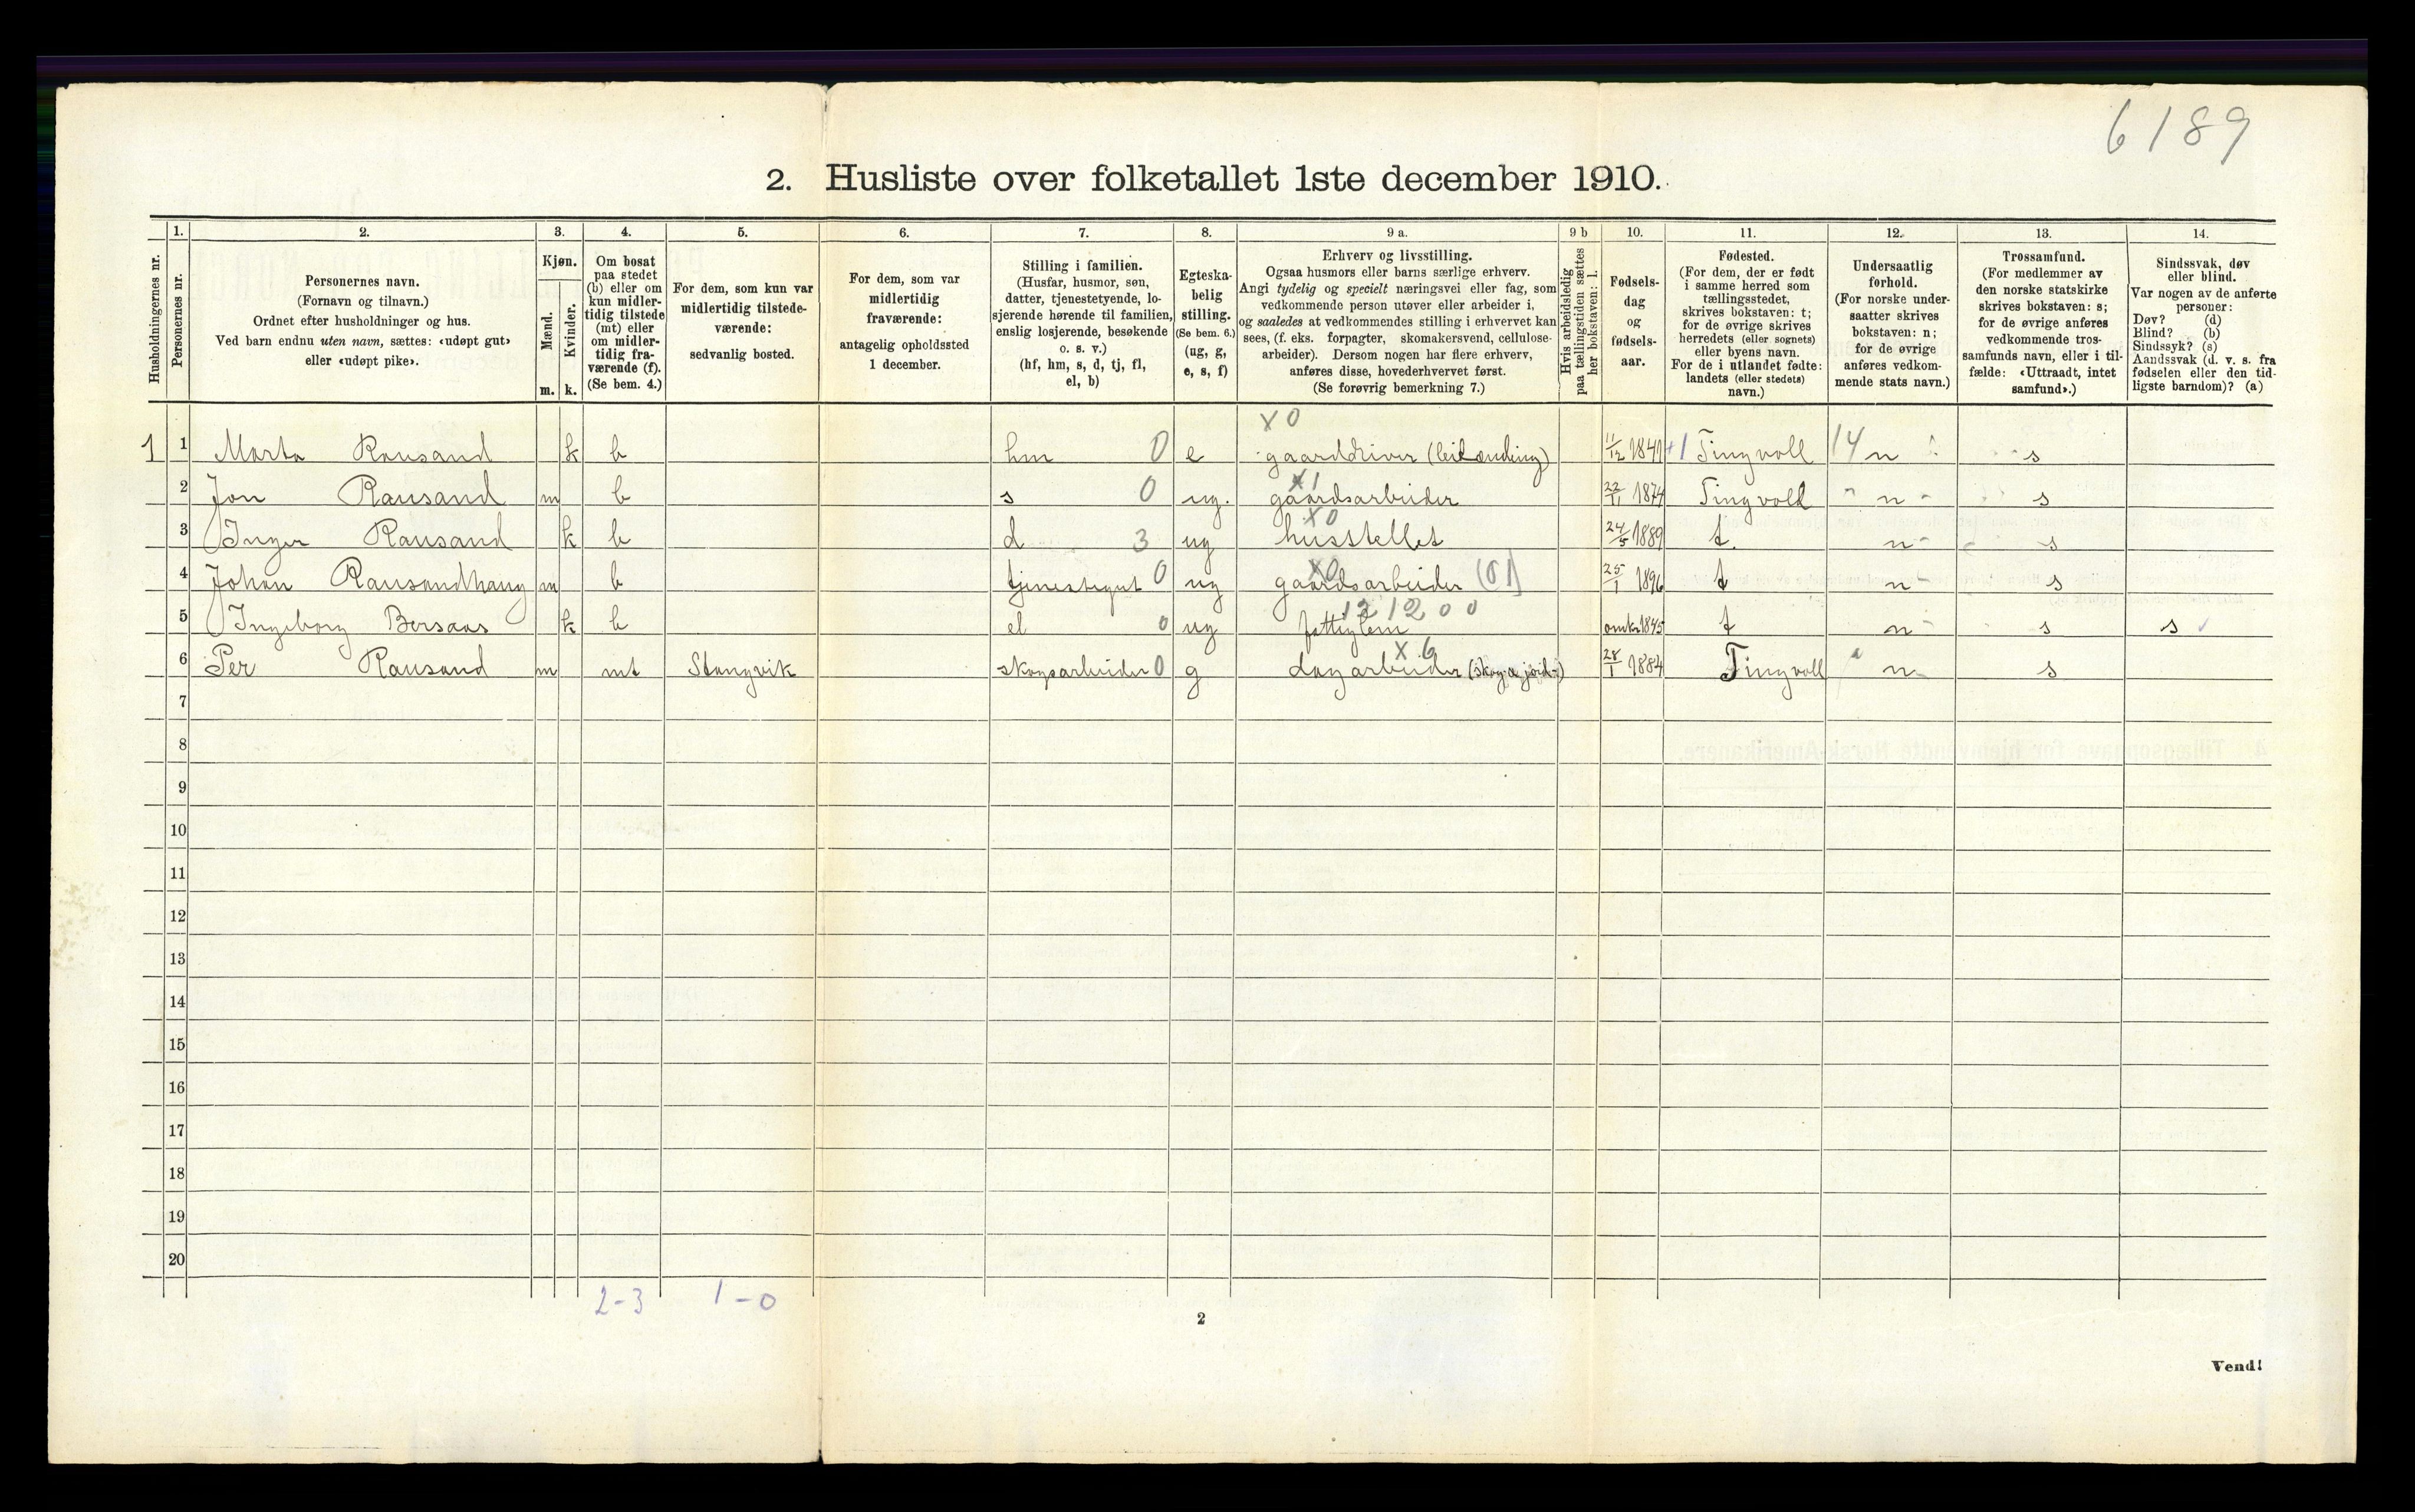 6189
2. Husliste over folketallet 1ste december 1910.
Husholdningernes nr.
1. Personernes nr.
2. Personernes navn.
(Fornavn og tilnavn.)
Ordnet efter husholdninger og hus.
Ved barn endnu uten navn, sættes: «udøpt gut»
eller «udøpt pike».
3. Kjøn.
Mænd. m.
Kvinder. k.
4. Om bosat
paa stedet
(b) eller om
kun midler-
tidig tilstede
(mt) eller
om midler-
tidig fra-
værende (f).
(Se bem. 4.)
5. For dem, som kun var
midlertidig tilstede-
værende:
sedvanlig bosted.
6. For dem, som var
midlertidig
fraværende:
antagelig opholdssted
1 december.
7. Stilling i familien.
(Husfar, husmor, søn,
datter, tjenestetyende, lo-
sjerende hørende til familien,
enslig losjerende, besøkende
o. s. v.)
(hf, hm, s, d, tj, fl,
el, b)
8. Egteska-
belig
stilling.
(Se bem. 6.)
(ug, g,
e, s, f)
9 a. Erhverv og livsstilling.
Ogsaa husmors eller barns særlige erhverv.
Angi tydelig og specielt næringsvei eller fag, som
vedkommende person utøver eller arbeider i,
og saaledes at vedkommendes stilling i erhvervet kan
sees, (f. eks. forpagter, skomakersvend, cellulose-
arbeider). Dersom nogen har flere erhverv,
anføres disse, hovederhvervet først.
(Se forøvrig bemerkning 7.)
9 b Hvis arbeidsledig
paa tællingstiden sættes
her bokstaven: l.
10. Fødsels-
dag
og
fødsels-
aar.
11. Fødested.
(For dem, der er født
i samme herred som
tællingsstedet,
skrives bokstaven: t;
for de øvrige skrives
herredets (eller sognets)
eller byens navn.
For de i utlandet fødte:
landets (eller stedets)
navn.)
12. Undersaatlig
forhold.
(For norske under-
saatter skrives
bokstaven: n;
for de øvrige
anføres vedkom-
mende stats navn.)
13. Trossamfund.
(For medlemmer av
den norske statskirke
skrives bokstaven: s;
for de øvrige anføres
vedkommende tros-
samfunds navn, eller i til-
fælde: «Uttraadt, intet
samfund».)
14. Sindssvak, døv
eller blind.
Var nogen av de anførte
personer:
Døv? (d)
Blind? (b)
Sindssyk? (s)
Aandssvak (d. v. s. fra
fødselen eller den tid-
ligste barndom)? (a)
X 0
1 1 Marta Rausand k b hm 0 e gaarddriver (leilænding) 11/12 1841 +1 Tingvoll 14 n s
X 1
2 Jon Rausand m b s 0 ug. gaardsarbeider 22/11 1874 Tingvold n s
X 0
3 Inger Rausand k b d 3 ug husstellet 24/5 1889 t. n s
X 0
4 Johan Rausandhaug m b tjenestegut 0 ug gaardsarbeider (01) 25/1 1896 t n s
12 12 0 0
5 Ingeborg Bersaas k b el 0 ug fattiglem omkr 1845 t n s s
X 6
6 Per Rausand m mt Stangvik skogsarbeider 0 g dagarbeider (skog- & jord-) 28/1 1884 Tingvoll n s
7
8
9
10
11
12
13
14
15
16
17
18
19
20
2-3 1-0
2
Vend!